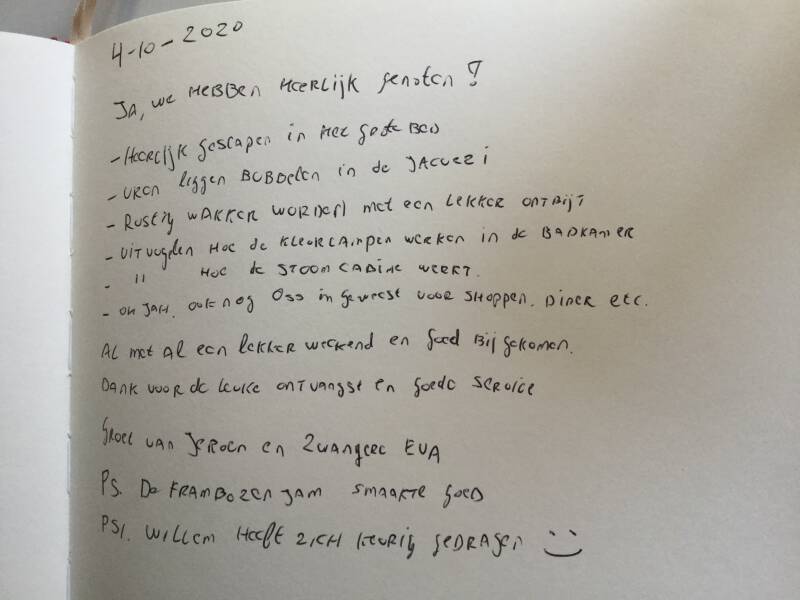 4-10-2020
Ja, we hebben heerlijk genoten!
- Heerlijk geslapen in het grote bed
- Uren liggen bubbelen in de jacuzzi
- Rustig wakker worden met een lekker ontbijt
- Uitvogelen hoe de kleurlampen werken in de badkamer
- " hoe de stoomcabine werkt.
- Oh jah, ook nog Oss in geweest voor shoppen, diner etc.
Al met al een lekker weekend en goed bijgekomen.
Dank voor de leuke ontvangst en goede service
Groet van Jeroen en zwangere Eva
PS. De frambozenjam smaakte goed
PS1. Willem heeft zich keurig gedragen